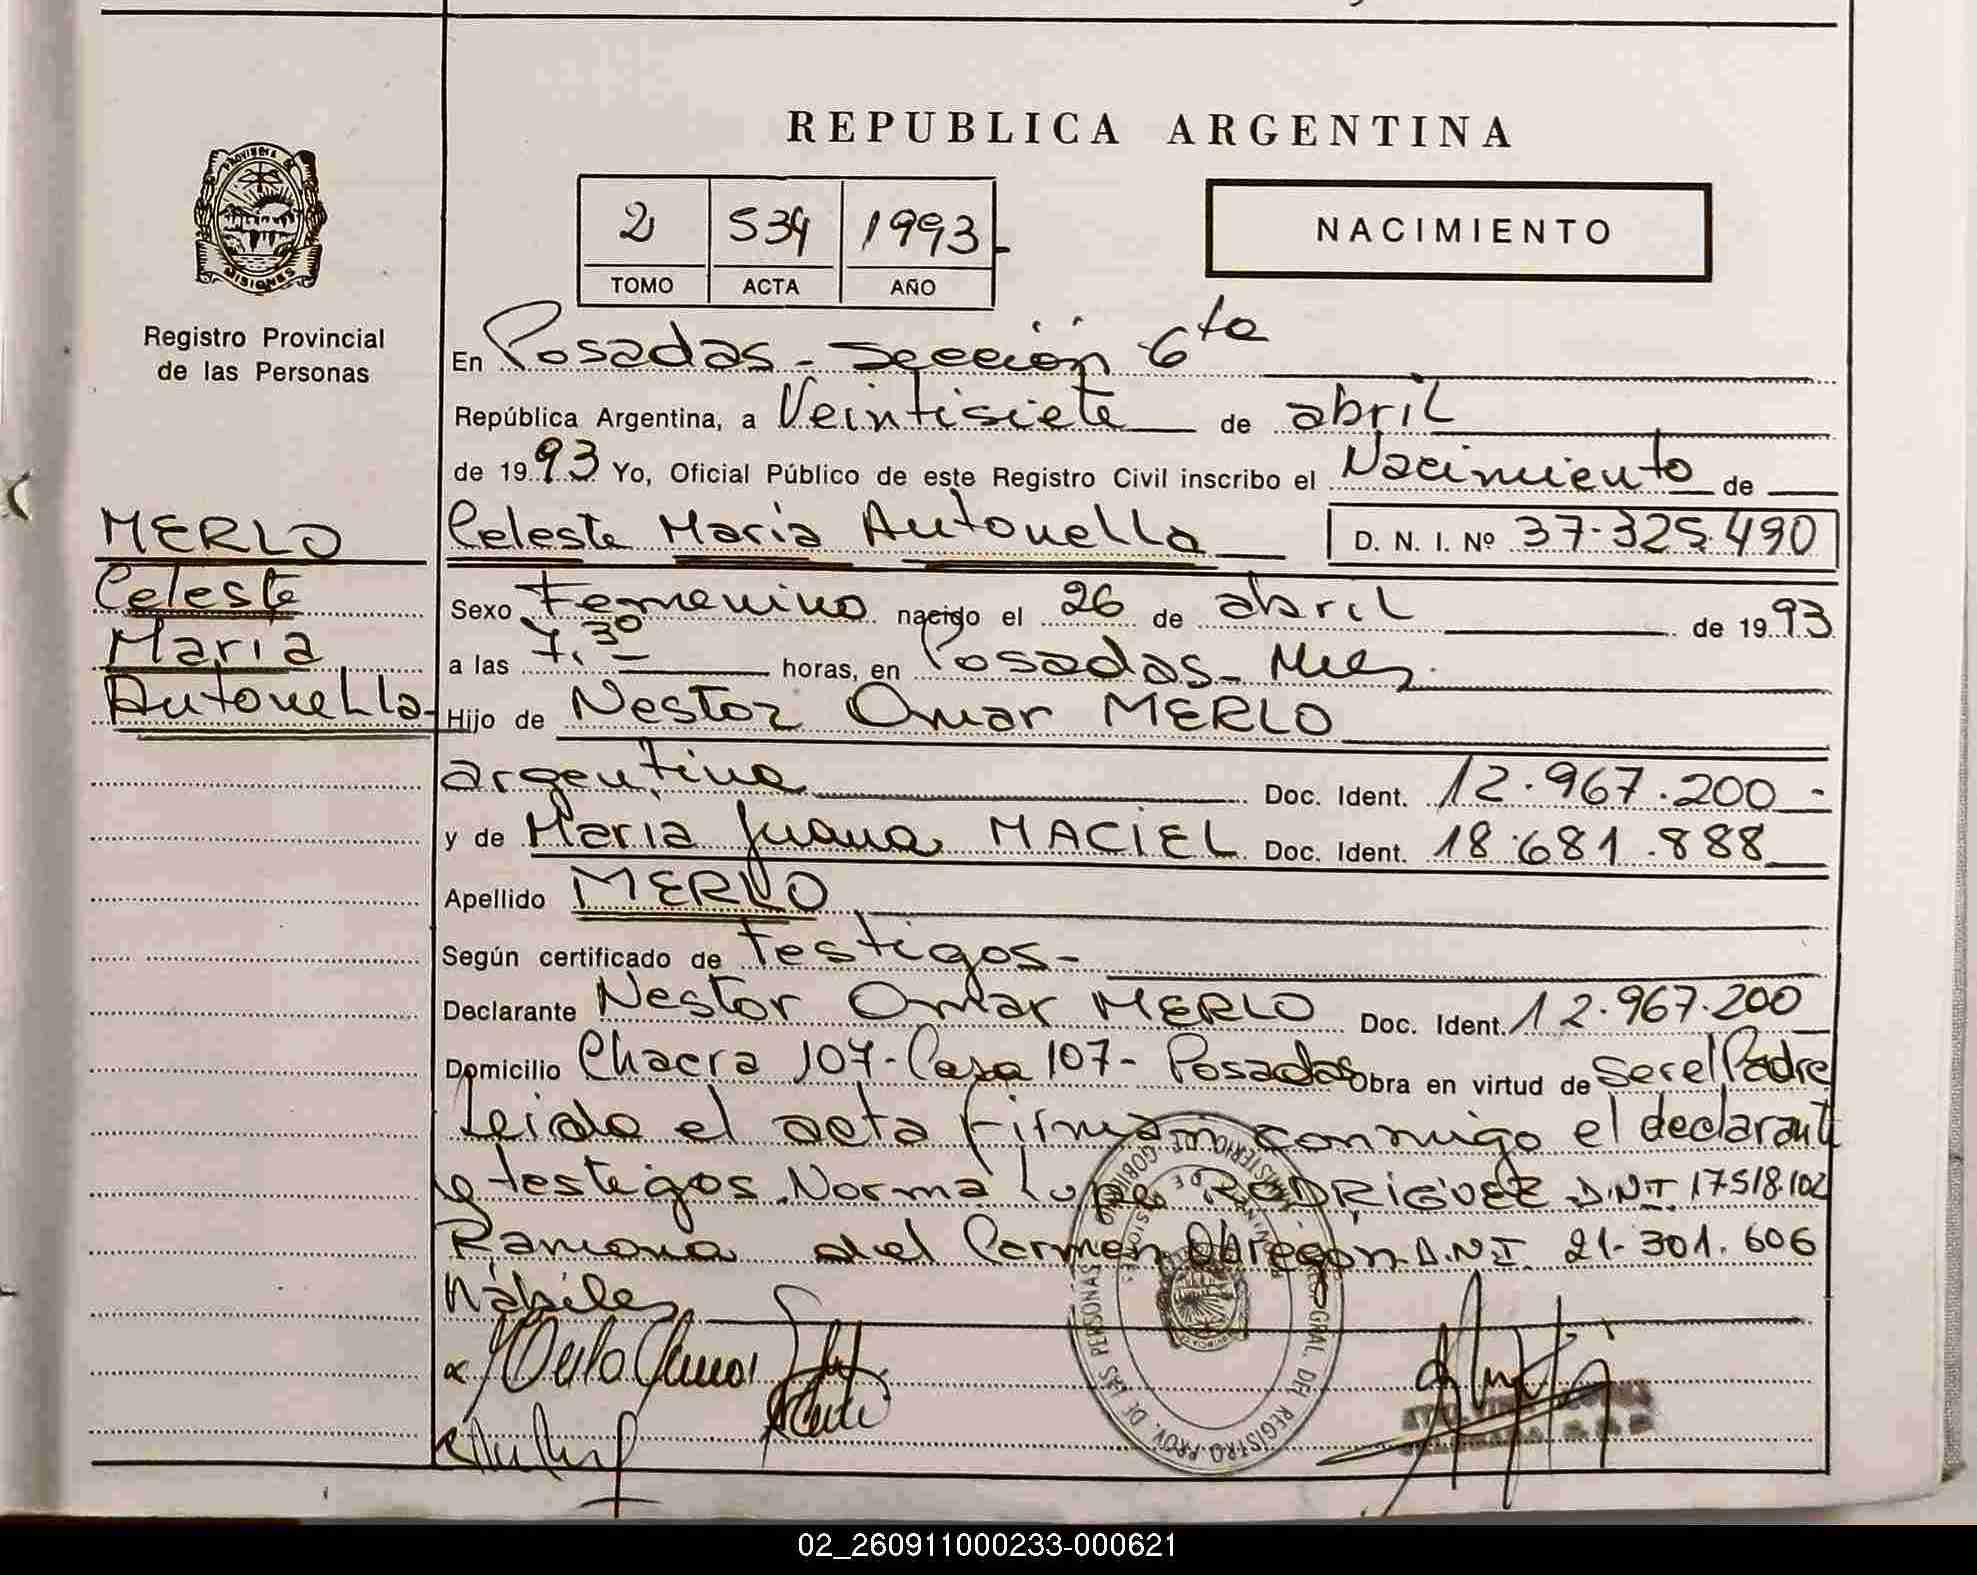 REPUBLICA ARGENTINA
PROVINCIA DE
MISIONES
Registro Provincial
de las Personas
2 534 1993
TOMO ACTA AÑO
NACIMIENTO
En Posadas - Sección 6ta
República Argentina, a Veintisiete de abril
de 1993 Yo, Oficial Público de este Registro Civil inscribo el Nacimiento de
MERLO
Celeste
Maria
Antonella
Celeste Maria Antonella D. N. I. Nº 37.325.490
Sexo Femenino nacido el 26 de abril de 1993
a las 7,30 horas, en Posadas - Mnes.
Hijo de Nestor Omar MERLO
argentina Doc. Ident. 12.967.200 -
y de Maria Juana MACIEL Doc. Ident. 18.681.888
Apellido MERLO
Según certificado de testigos -
Declarante Nestor Omar MERLO Doc. Ident. 12.967.200
Domicilio Chacra 107 - Casa 107 - Posadas Obra en virtud de ser el Padre
Leido el acta firman conmigo el declarante
y testigos Norma Lupe RODRIGUEZ D.N.I. 17518.102
Ramona del Carmen Obregon D.N.I. 21.301.606
hábiles
02_260911000233-000621